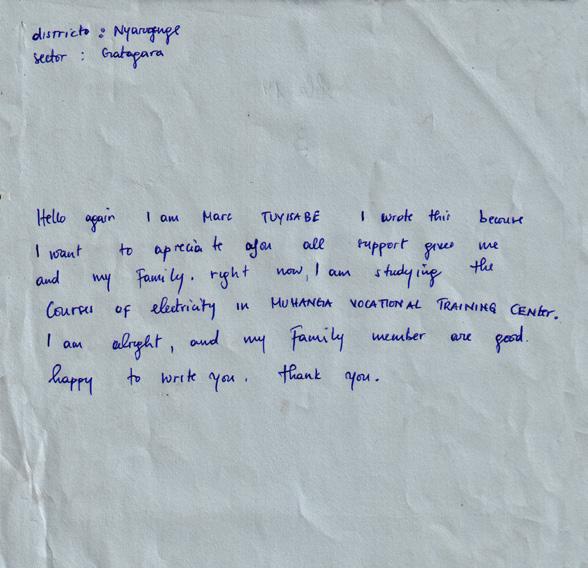 districto : Nyarugunge
sector : Gatagara
Hello again I am Marc TUYISABE I wrote this because
I want to apreciate you all support given me
and my Family. right now, I am studying the
Courses of electricity in MUHANGA VOCATIONAL TRAINING CENter.
I am alright, and my Family member are good.
happy to write you. thank you.